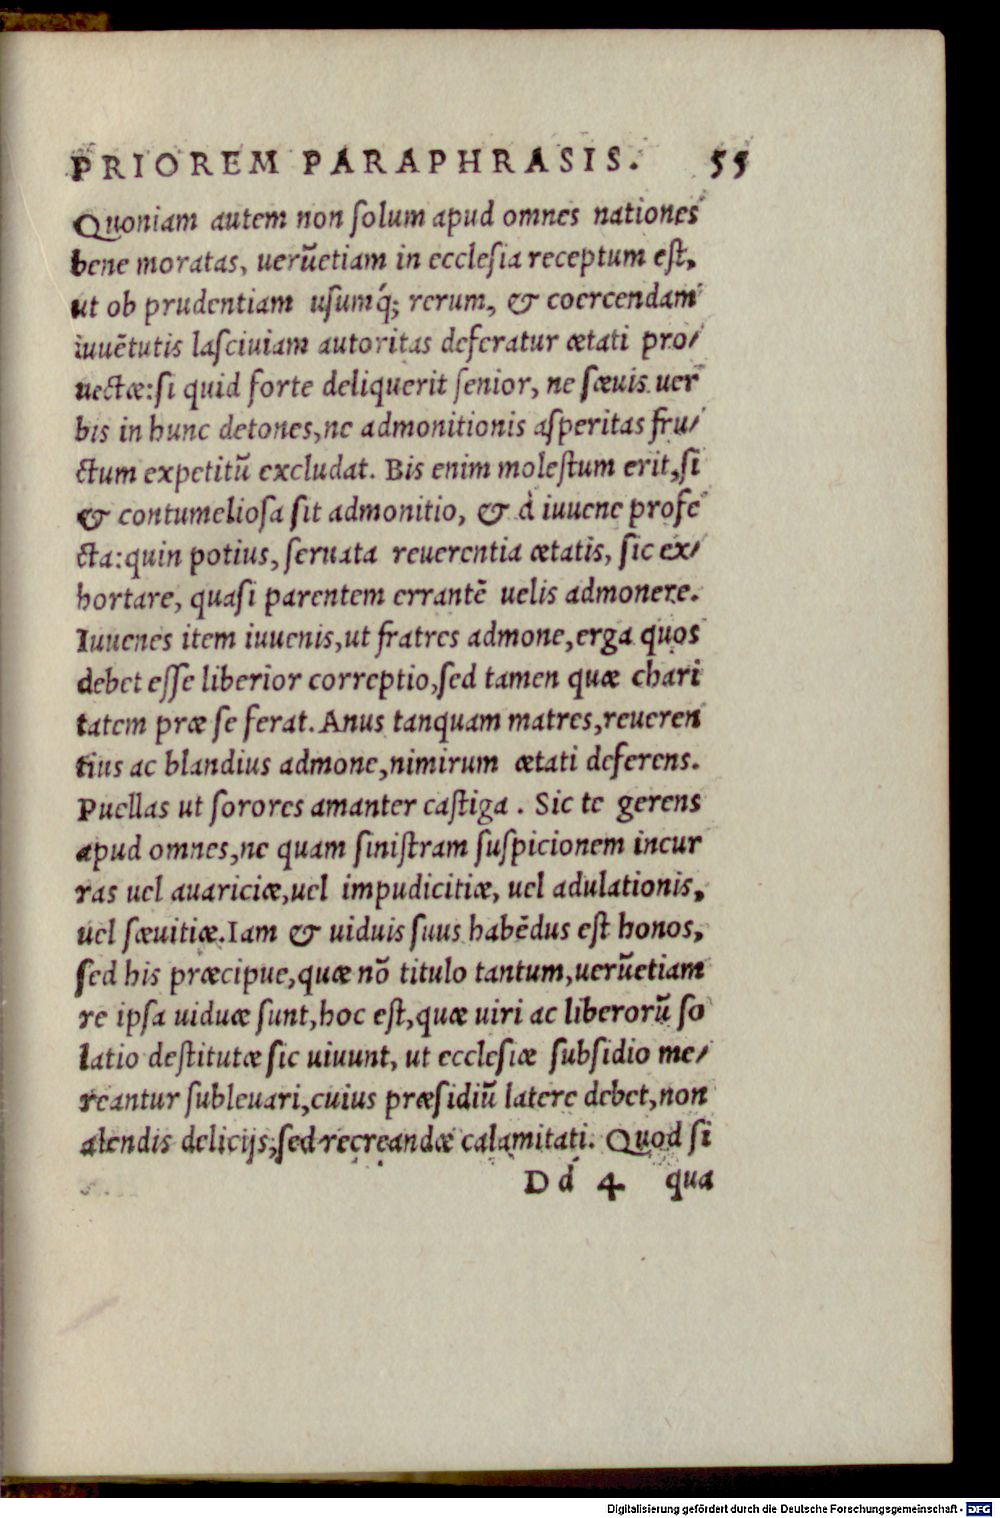 PRIOREM PARAPHRASIS. 55
Quoniam autem non ſolum apud omnes nationes
bene moratas, uerūetiam in eccleſia receptum eſt,
ut ob prudentiam uſumq́; rerum, & coercendam
iuuētutis laſciuiam autoritas deferatur ætati pro/
uectæ: ſi quid forte deliquerit ſenior, ne ſæuis uer
bis in hunc detones, ne admonitionis aſperitas fru/
ctum expetitū excludat. Bis enim moleſtum erit, ſi
& contumelioſa ſit admonitio, & à iuuene profe
cta: quin potius, ſeruata reuerentia ætatis, ſic ex/
hortare, quaſi parentem errantē uelis admonere.
Iuuenes item iuuenis, ut fratres admone, erga quos
debet eſſe liberior correptio, ſed tamen quæ chari
tatem præ ſe ferat. Anus tanquam matres, reueren
tius ac blandius admone, nimirum ætati deferens.
Puellas ut ſorores amanter caſtiga. Sic te gerens
apud omnes, ne quam ſiniſtram ſuſpicionem incur
ras uel auariciæ, uel impudicitiæ, uel adulationis,
uel ſæuitiæ. Iam & uiduis ſuus habēdus eſt honos,
ſed his præcipue, quæ nō titulo tantum, uerūetiam
re ipſa uiduæ ſunt, hoc eſt, quæ uiri ac liberorū ſo
latio deſtitutæ ſic uiuunt, ut eccleſiæ ſubſidio me/
reantur ſubleuari, cuius præſidiū latere debet, non
alendis delicijs, ſed recreandæ calamitati. Quod ſi
Dd 4 qua
Digitalisierung gefördert durch die Deutsche Forschungsgemeinschaft - DFG